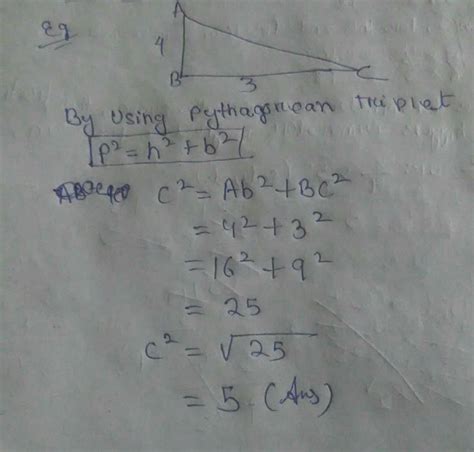 Eg
A
4
B
3
C
By using Pythagorean triplet
P² = h² + b²
C² = Ab² + BC²
= 4² + 3²
= 16² + 9²
= 25
C² = √25
= 5 (Ans)